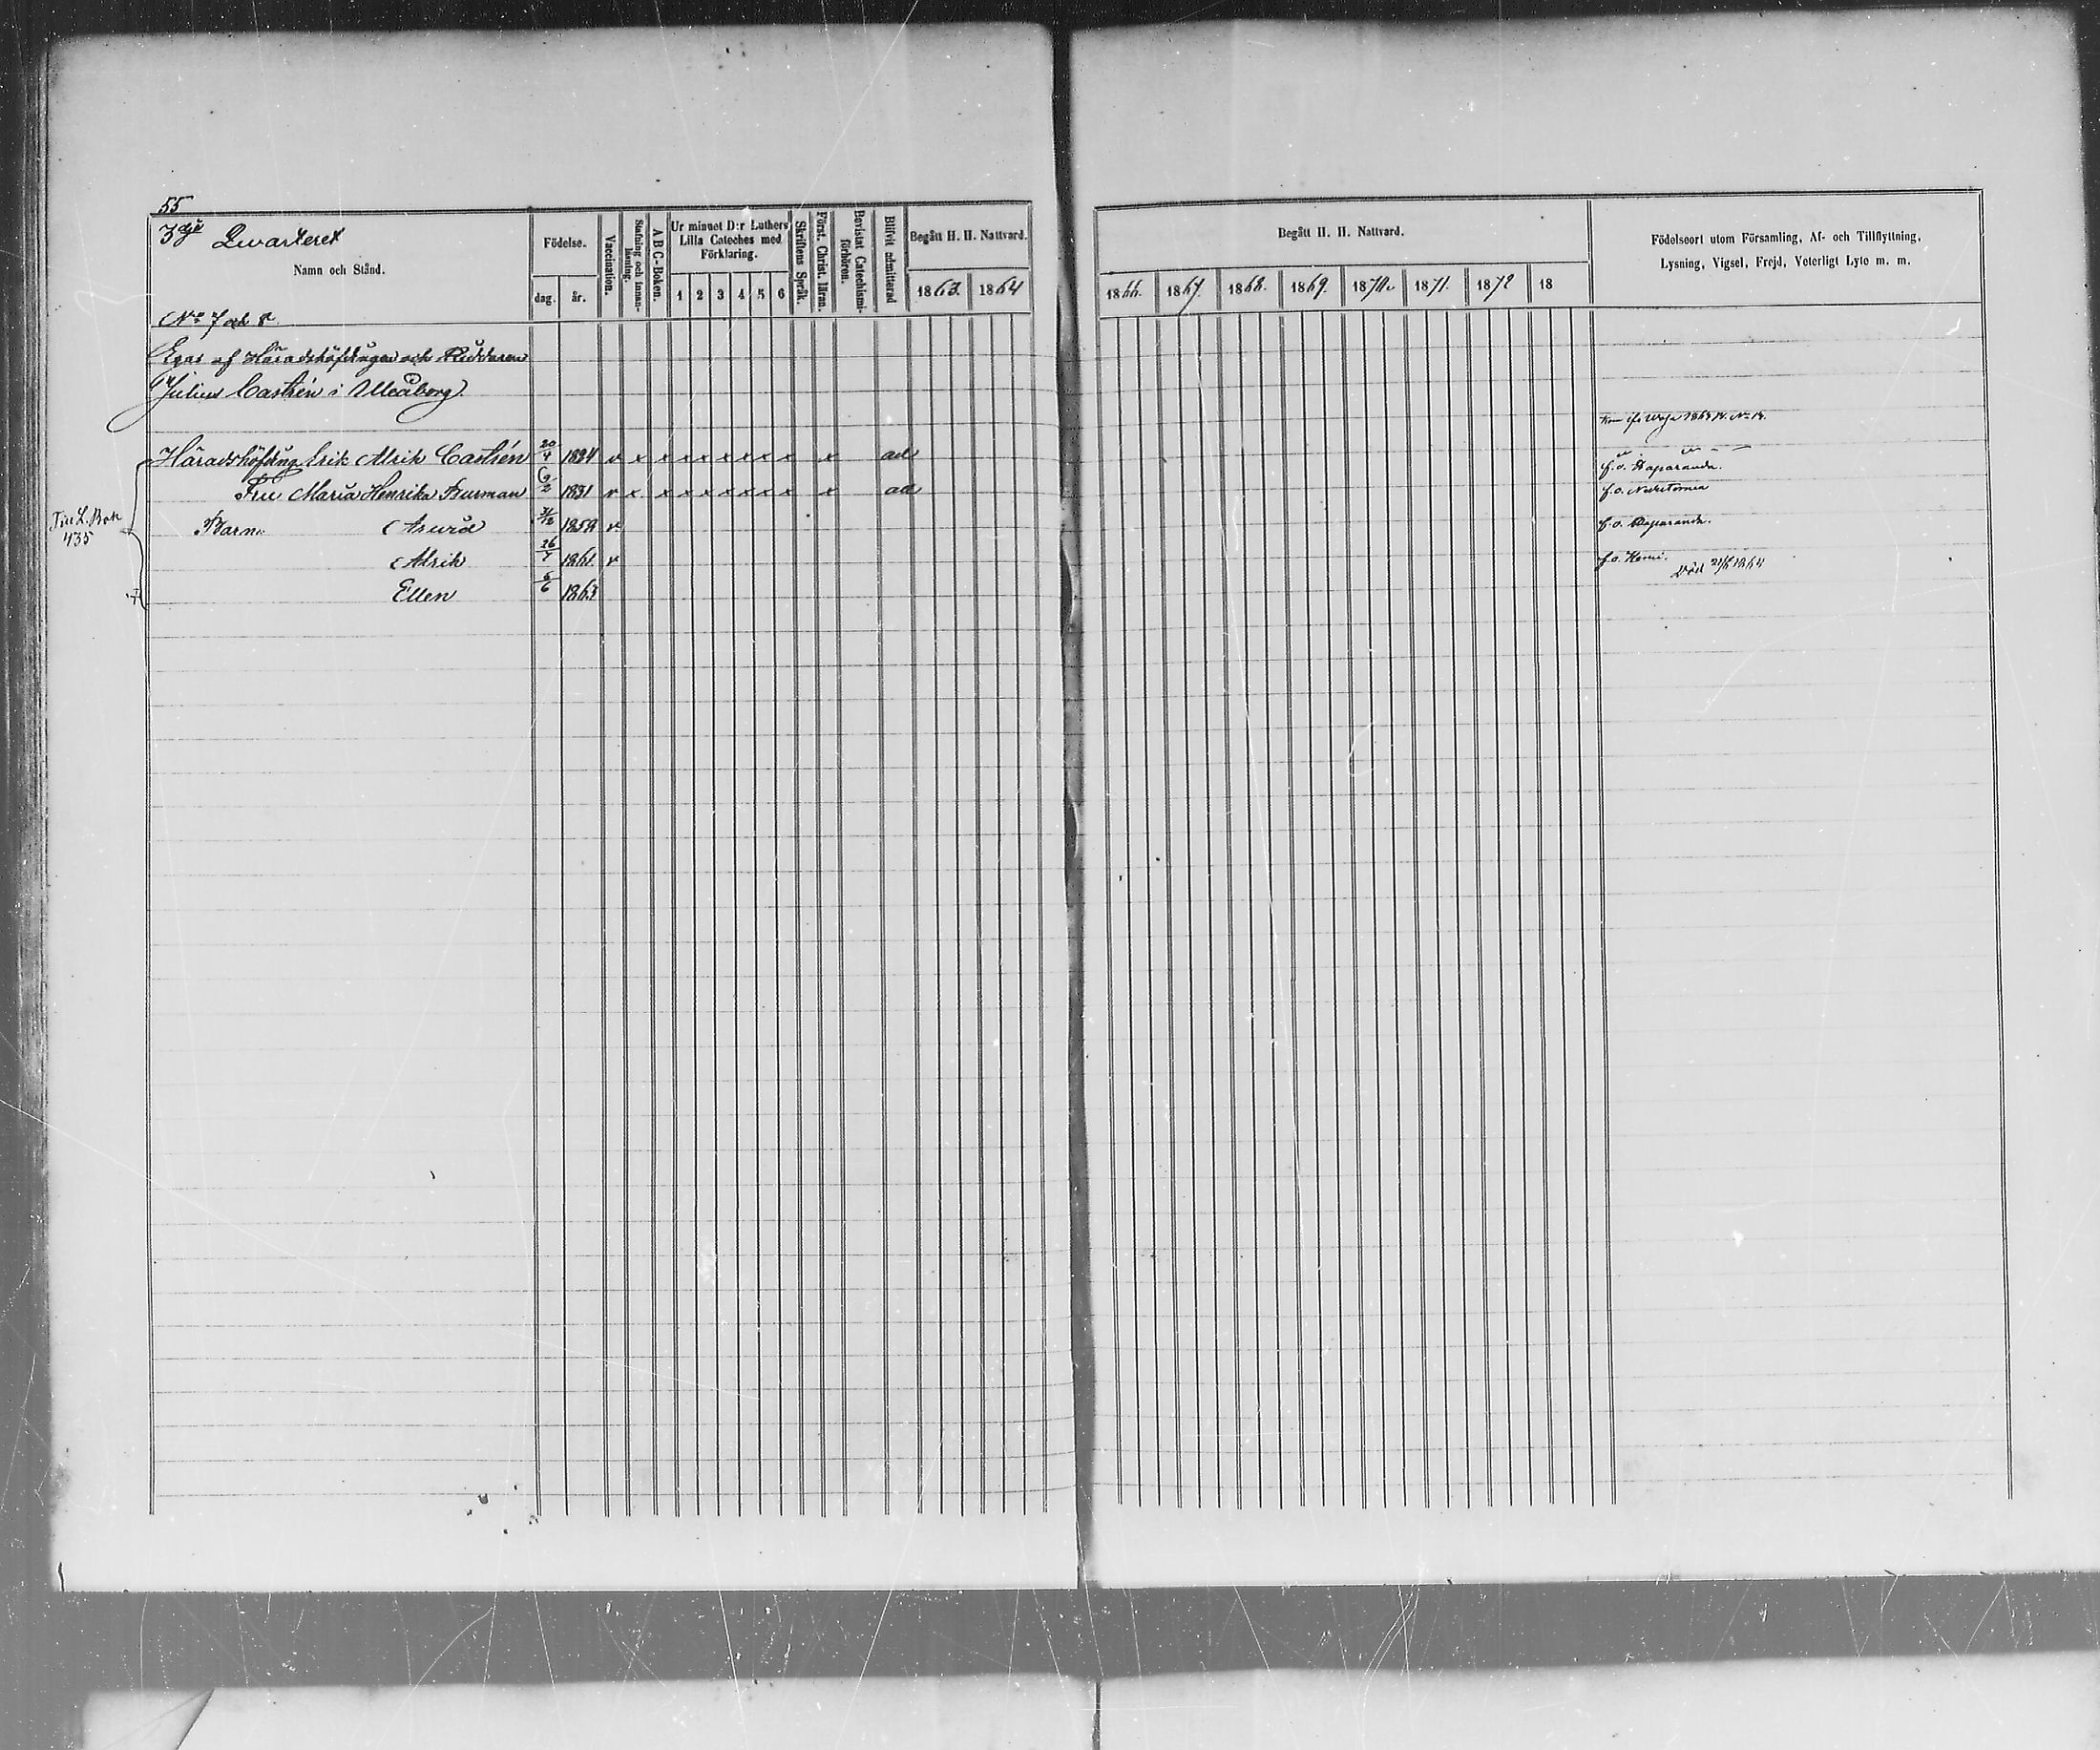 55
3dje Qvarteret
Namn och Stånd.
Födelse.
dag. år.
Vaccination.
Stafning och innanläsning.
A B C-Boken.
Ur minnet D:r Luthers Lilla Cateches med Förklaring.
1 2 3 4 5 6
Skriftens Språk.
Först. Christ. läran.
Bevistat Catechismiförhören.
Blifvit admitterad
Begått H. H. Nattvard.
1863. 1864
Begått H. H. Nattvard.
1866. 1867. 1868. 1869. 1870. 1871. 1872 18
Födelseort utom Församling, Af- och Tillflyttning,
Lysning, Vigsel, Frejd, Veterligt Lyte m. m.
No 7 och 8
Egas af Häradshöfdingen och Riddaren
Julius Castrén i Uleåborg.
Häradshöfding Erik Alrik Castrén 20/4 1824 v x x x x x x x x x x ad f.o. Haparanda.
Fru Maria Henrika Burman 6/2 1831 v x x x x x x x x x ad f.o. Nedertornea
Till L. Bok
435
Barn: 31/12 1859 v f.o. Haparanda.
Alrik 26/7 1861 v f.o. Kemi.
+ Ellen 6/6 1863 Död